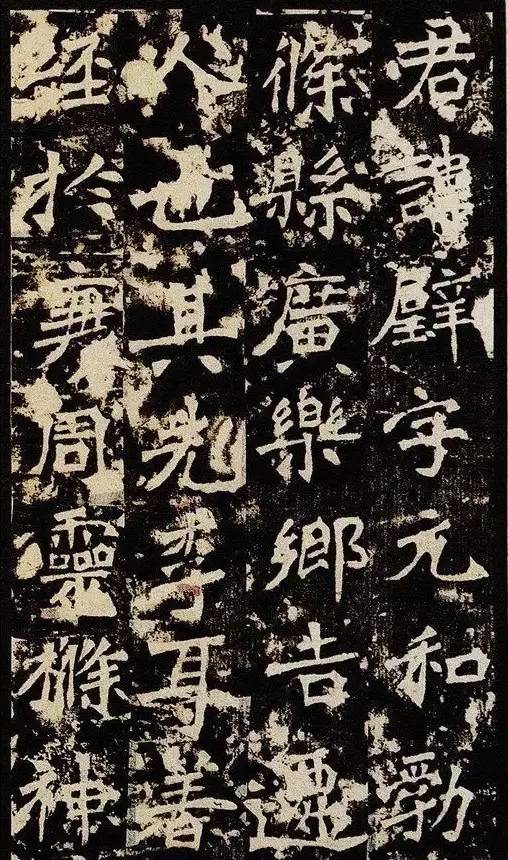 君諱璧字元和勃
條縣廣樂鄉吉遷
人也其先李耳著
經於衰周靈樤神